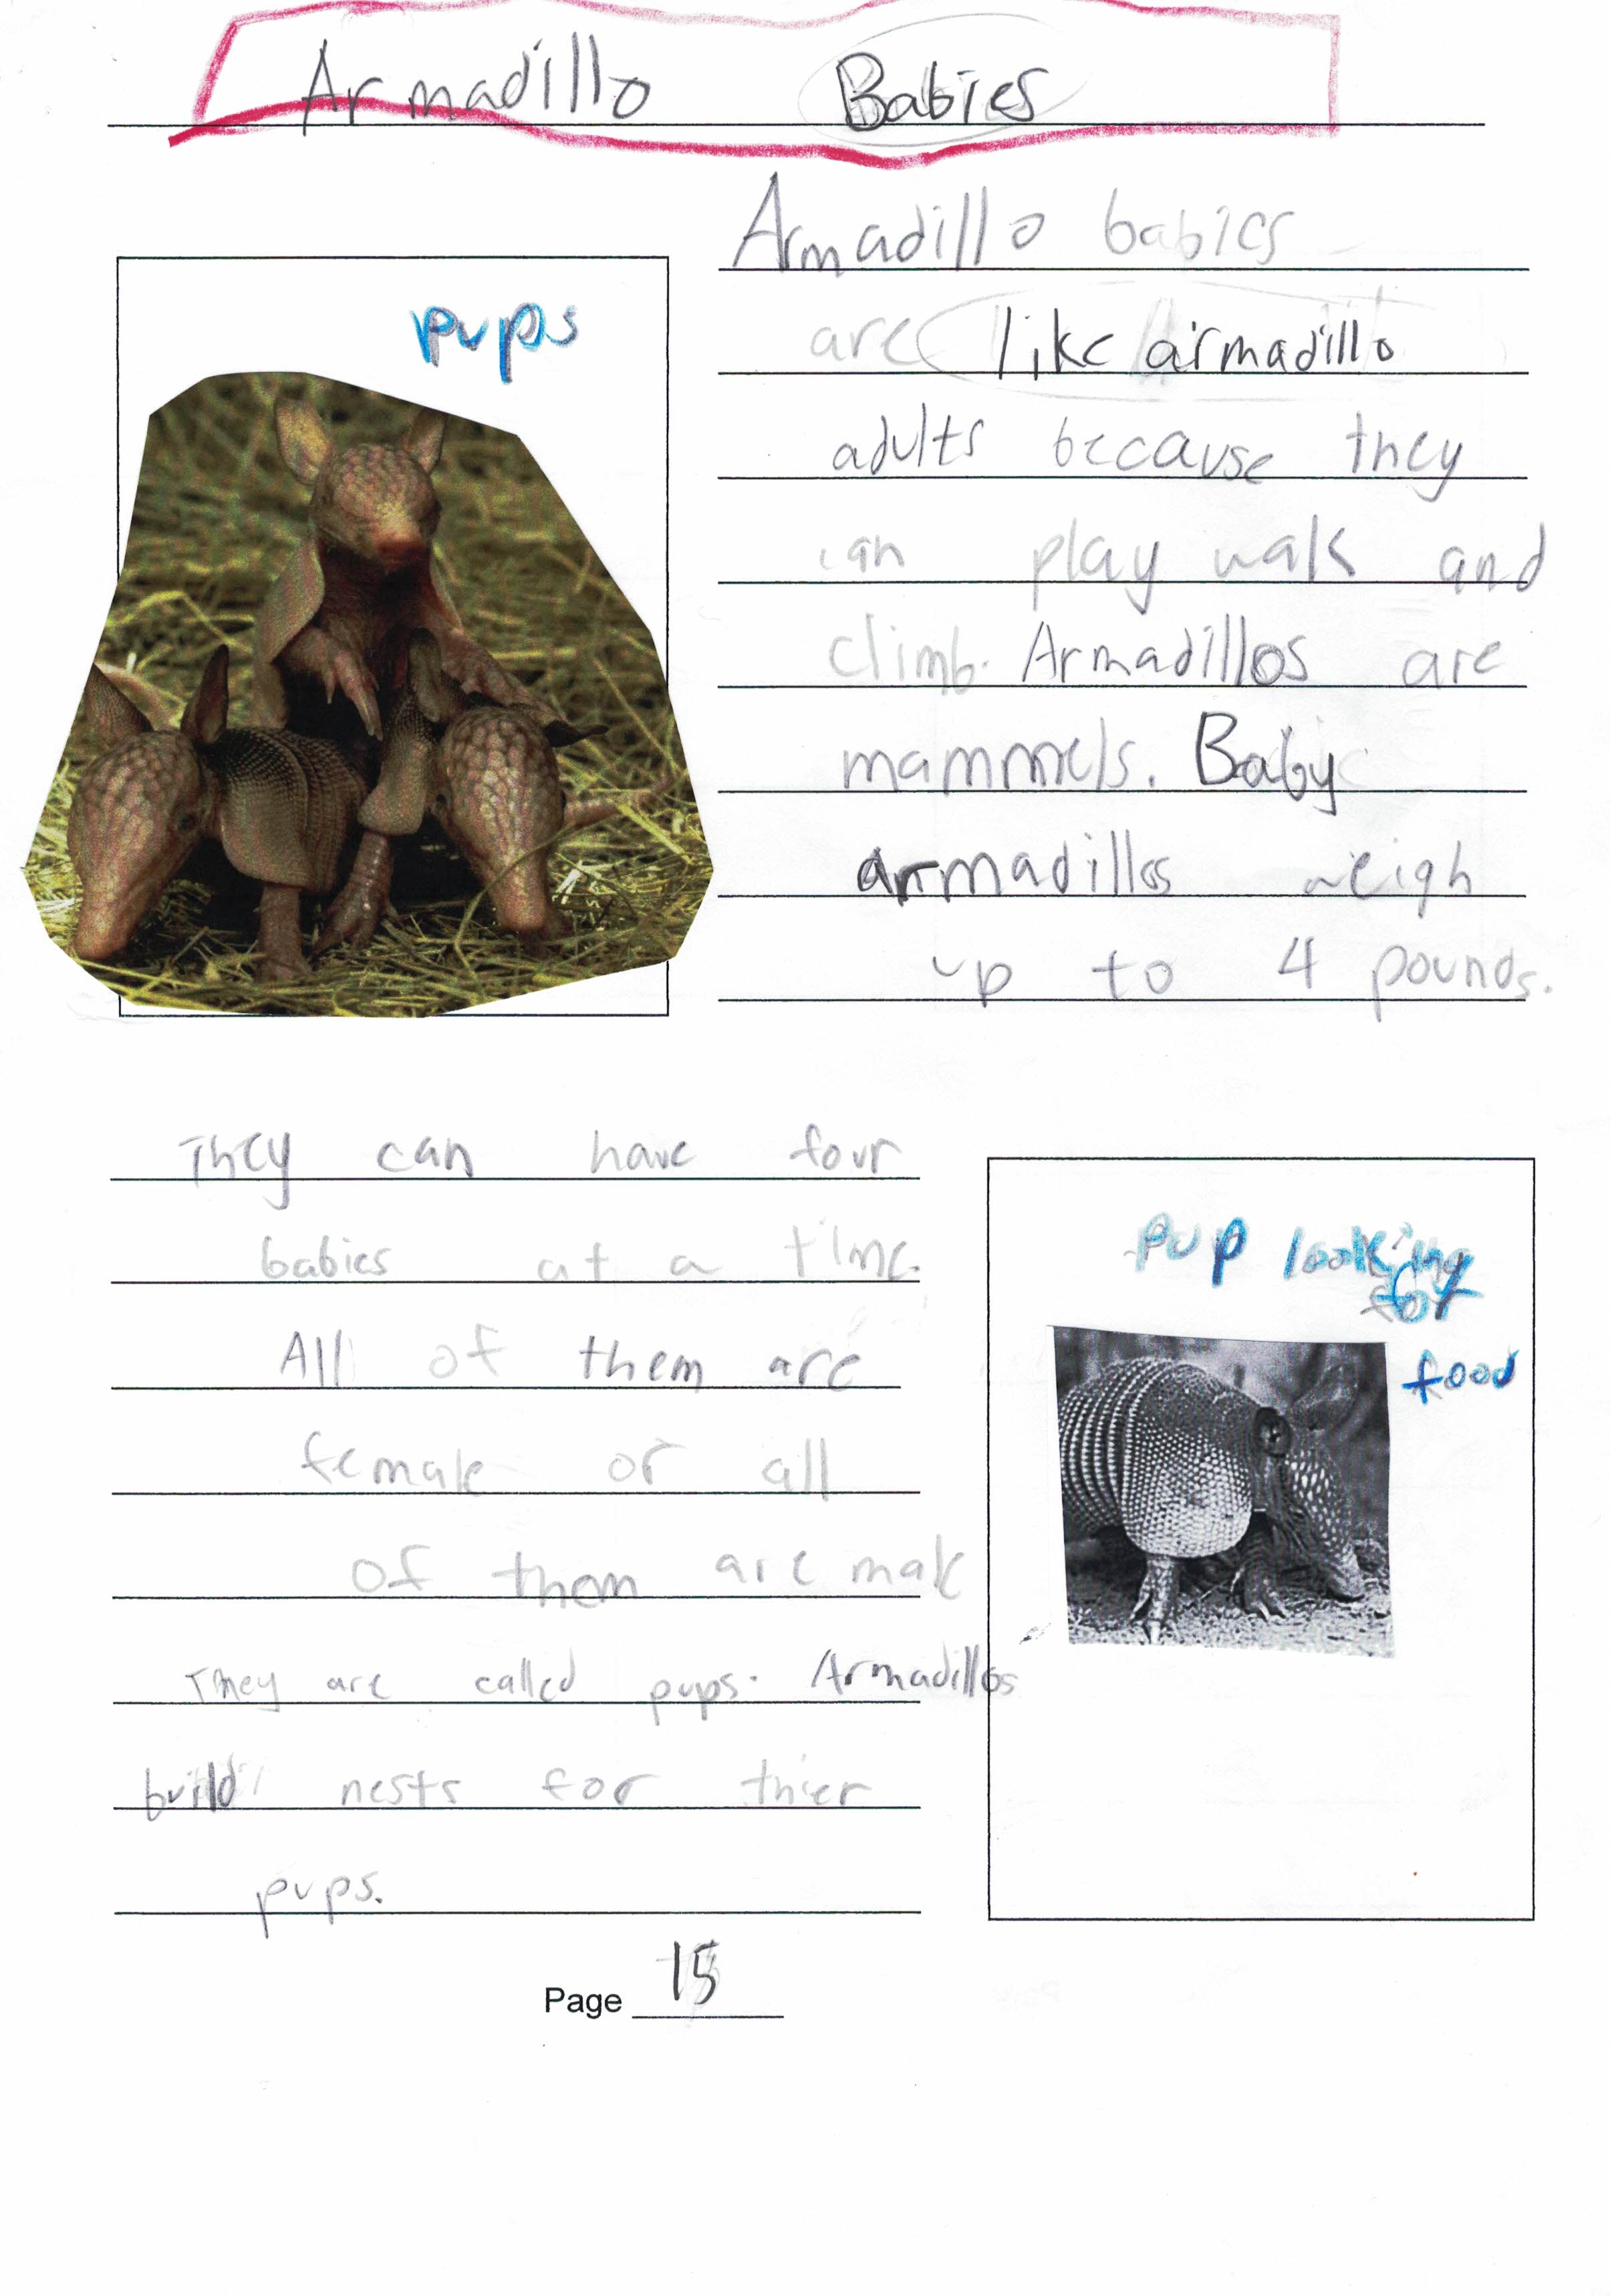 Armadillo Babies
pups
Armadillo babies
are like armadillo
adults because they
can play walk and
climb. Armadillos are
mammels. Baby
armadillos weigh
up to 4 pounds.
They can have four
babies at a time.
All of them are
female or all
of them are male
They are called pups. Armadillos
build nests for thier
pups.
pup looking
for
food
Page 15